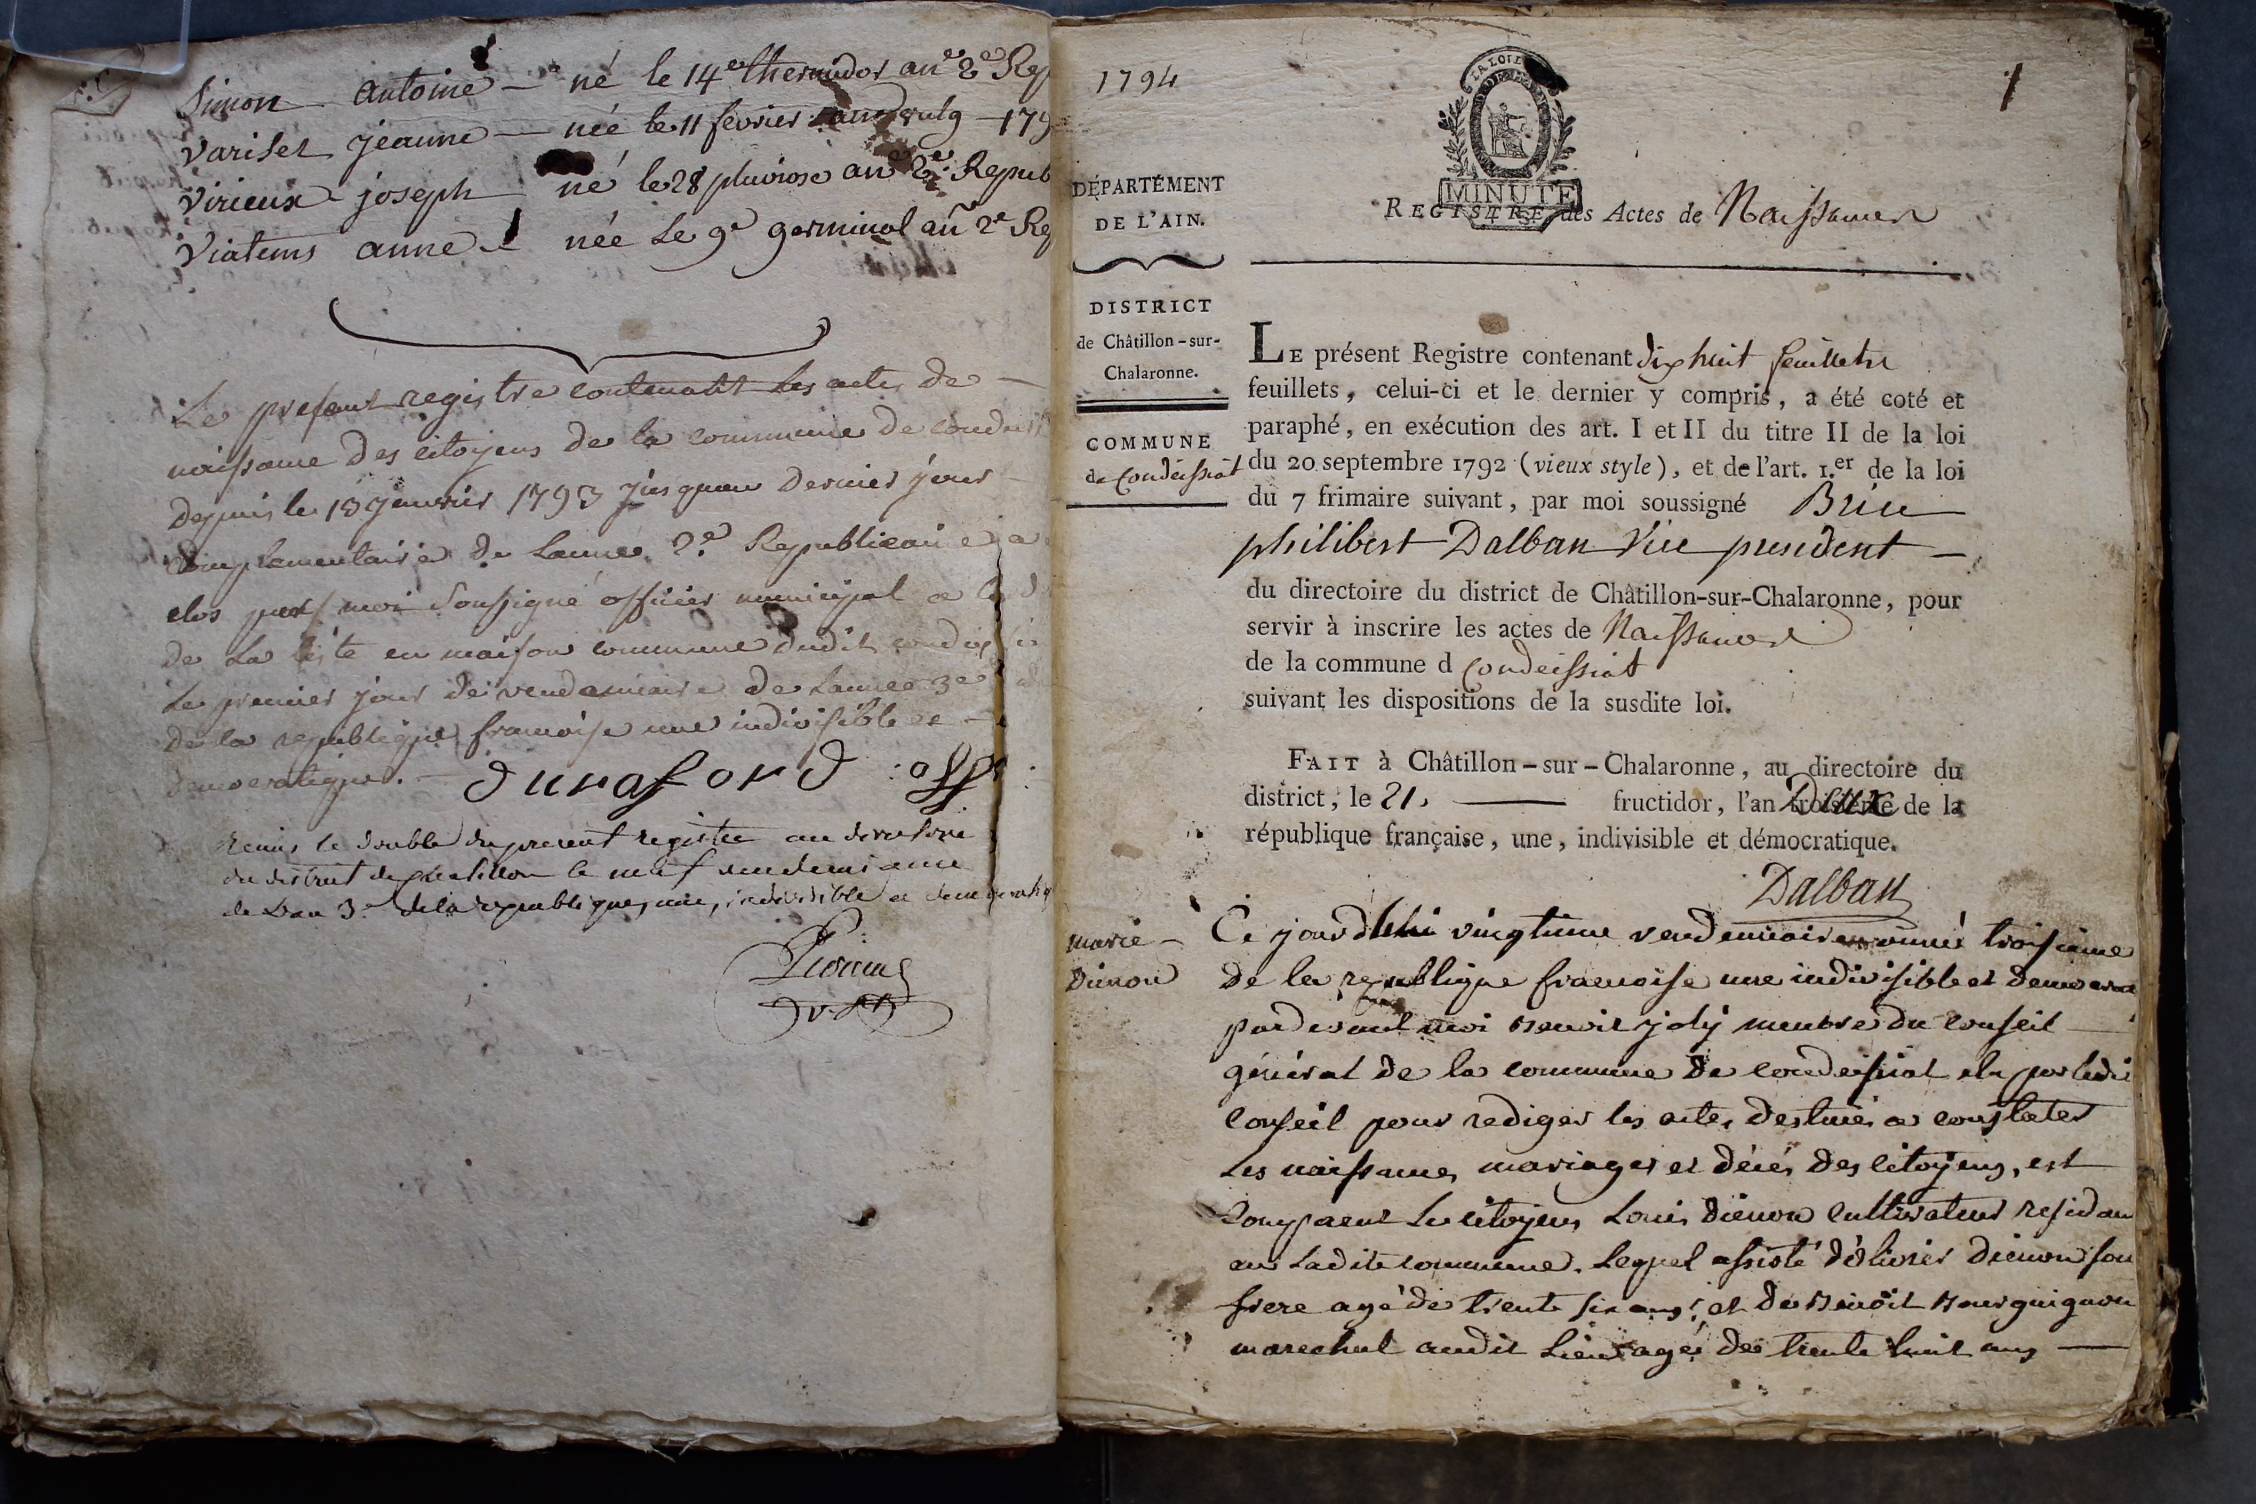 Simon antoine — né le 14e thermidor an 2e Rep
Variset jeanne — née le 11 fevrier
Virieux joseph né le 28 pluviose an 2e Repub
Viatems anne née Le 9e germinal an 2e Rep
Le present registre contenant Les actes de —
naissance des citoyens de la commune de
depuis le janvier 1793 jusquau dernier jour
complementaire de Lannee 2e Republicaine
clos par moi soussigné officier municipal a
de La liste en maison commune dudit
Le premier jour de vendemiaire de Lannee 3e
de la republique francoise une indivisible et —
democratique. — duraford off
Remis le double du present registre au
du district de chatillon le neuf vendemiaire
de Lan 3e dela republique, une, indivisible et democratiq
1794
1
LA LOI
MINUTE
4 S
DÉPARTEMENT
DE L'AIN.
REGISTRE des Actes de Naissances
DISTRICT
de Châtillon-sur-
Chalaronne.
COMMUNE
de Condeissiat
LE présent Registre contenant dix huit feuillets
feuillets, celui-ci et le dernier y compris, a été coté et
paraphé, en exécution des art. I et II du titre II de la loi
du 20 septembre 1792 (vieux style), et de l'art. 1.er de la loi
du 7 frimaire suivant, par moi soussigné Brice
philibert Dalban Vice president —
du directoire du district de Châtillon-sur-Chalaronne, pour
servir à inscrire les actes de Naissances
de la commune d Condeissiat
suivant les dispositions de la susdite loi.
FAIT à Châtillon-sur-Chalaronne, au directoire du
district, le 21. — fructidor, l'an Deux de la
république française, une, indivisible et démocratique.
Dalban
marie —
Dienon
Ce jourdhui vingtieme vendemiaire année troisieme
de la republique francoise une indivisible et democra
pardevant moi Benoit joly membre du conseil —
général de la commune de condeissiat elu par ledit
conseil pour rediger les actes destinés a constater
Les naissances, mariages et décés des citoyens, est
comparut Le citoyen Louis Dienon cultivateur residan
en Ladite commune. Lequel assisté d'olivier Dienon son
frere agé de trente six ans, et de Benoit Bourguignon
marechal audit Lieu agé de trente huit ans —